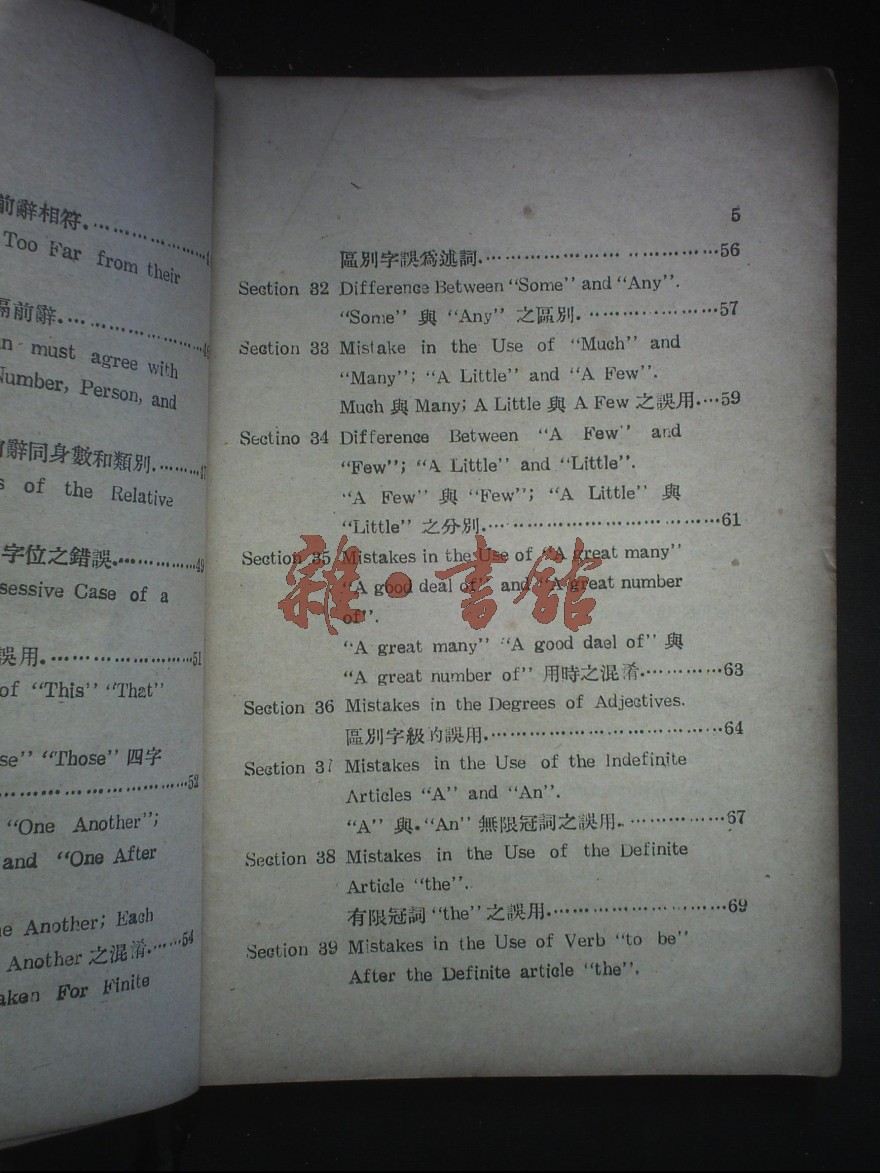 前辭相符.
Too Far from their
前辭.
must agree with
Number, Person, and
前辭同身數和類別.
of the Relative
字位之錯誤. 49
Case of a
誤用. 51
of “This” “That”
“Those” 四字
52
“One Another”;
and “One After
Another; Each
Another 之混淆. 54
For Finite
5
區別字誤爲述詞. 56
Section 32 Difference Between “Some” and “Any”.
“Some” 與 “Any” 之區別. 57
Section 33 Mistake in the Use of “Much” and
“Many”; “A Little” and “A Few”.
Much 與 Many; A Little 與 A Few 之誤用. 59
Sectino 34 Difference Between “A Few” and
“Few”; “A Little” and “Little”.
“A Few” 與 “Few”; “A Little” 與
“Little” 之分別. 61
Section 35 Mistakes in the Use of “A great many”
“A good deal of” and “A great number
of”.
“A great many” “A good dael of” 與
“A great number of” 用時之混淆. 63
Section 36 Mistakes in the Degrees of Adjectives.
區別字級的誤用. 64
Section 37 Mistakes in the Use of the Indefinite
Articles “A” and “An”.
“A” 與 “An” 無限冠詞之誤用. 67
Section 38 Mistakes in the Use of the Definite
Article “the”.
有限冠詞 “the” 之誤用. 69
Section 39 Mistakes in the Use of Verb “to be”
After the Definite article “the”.
雜·書館